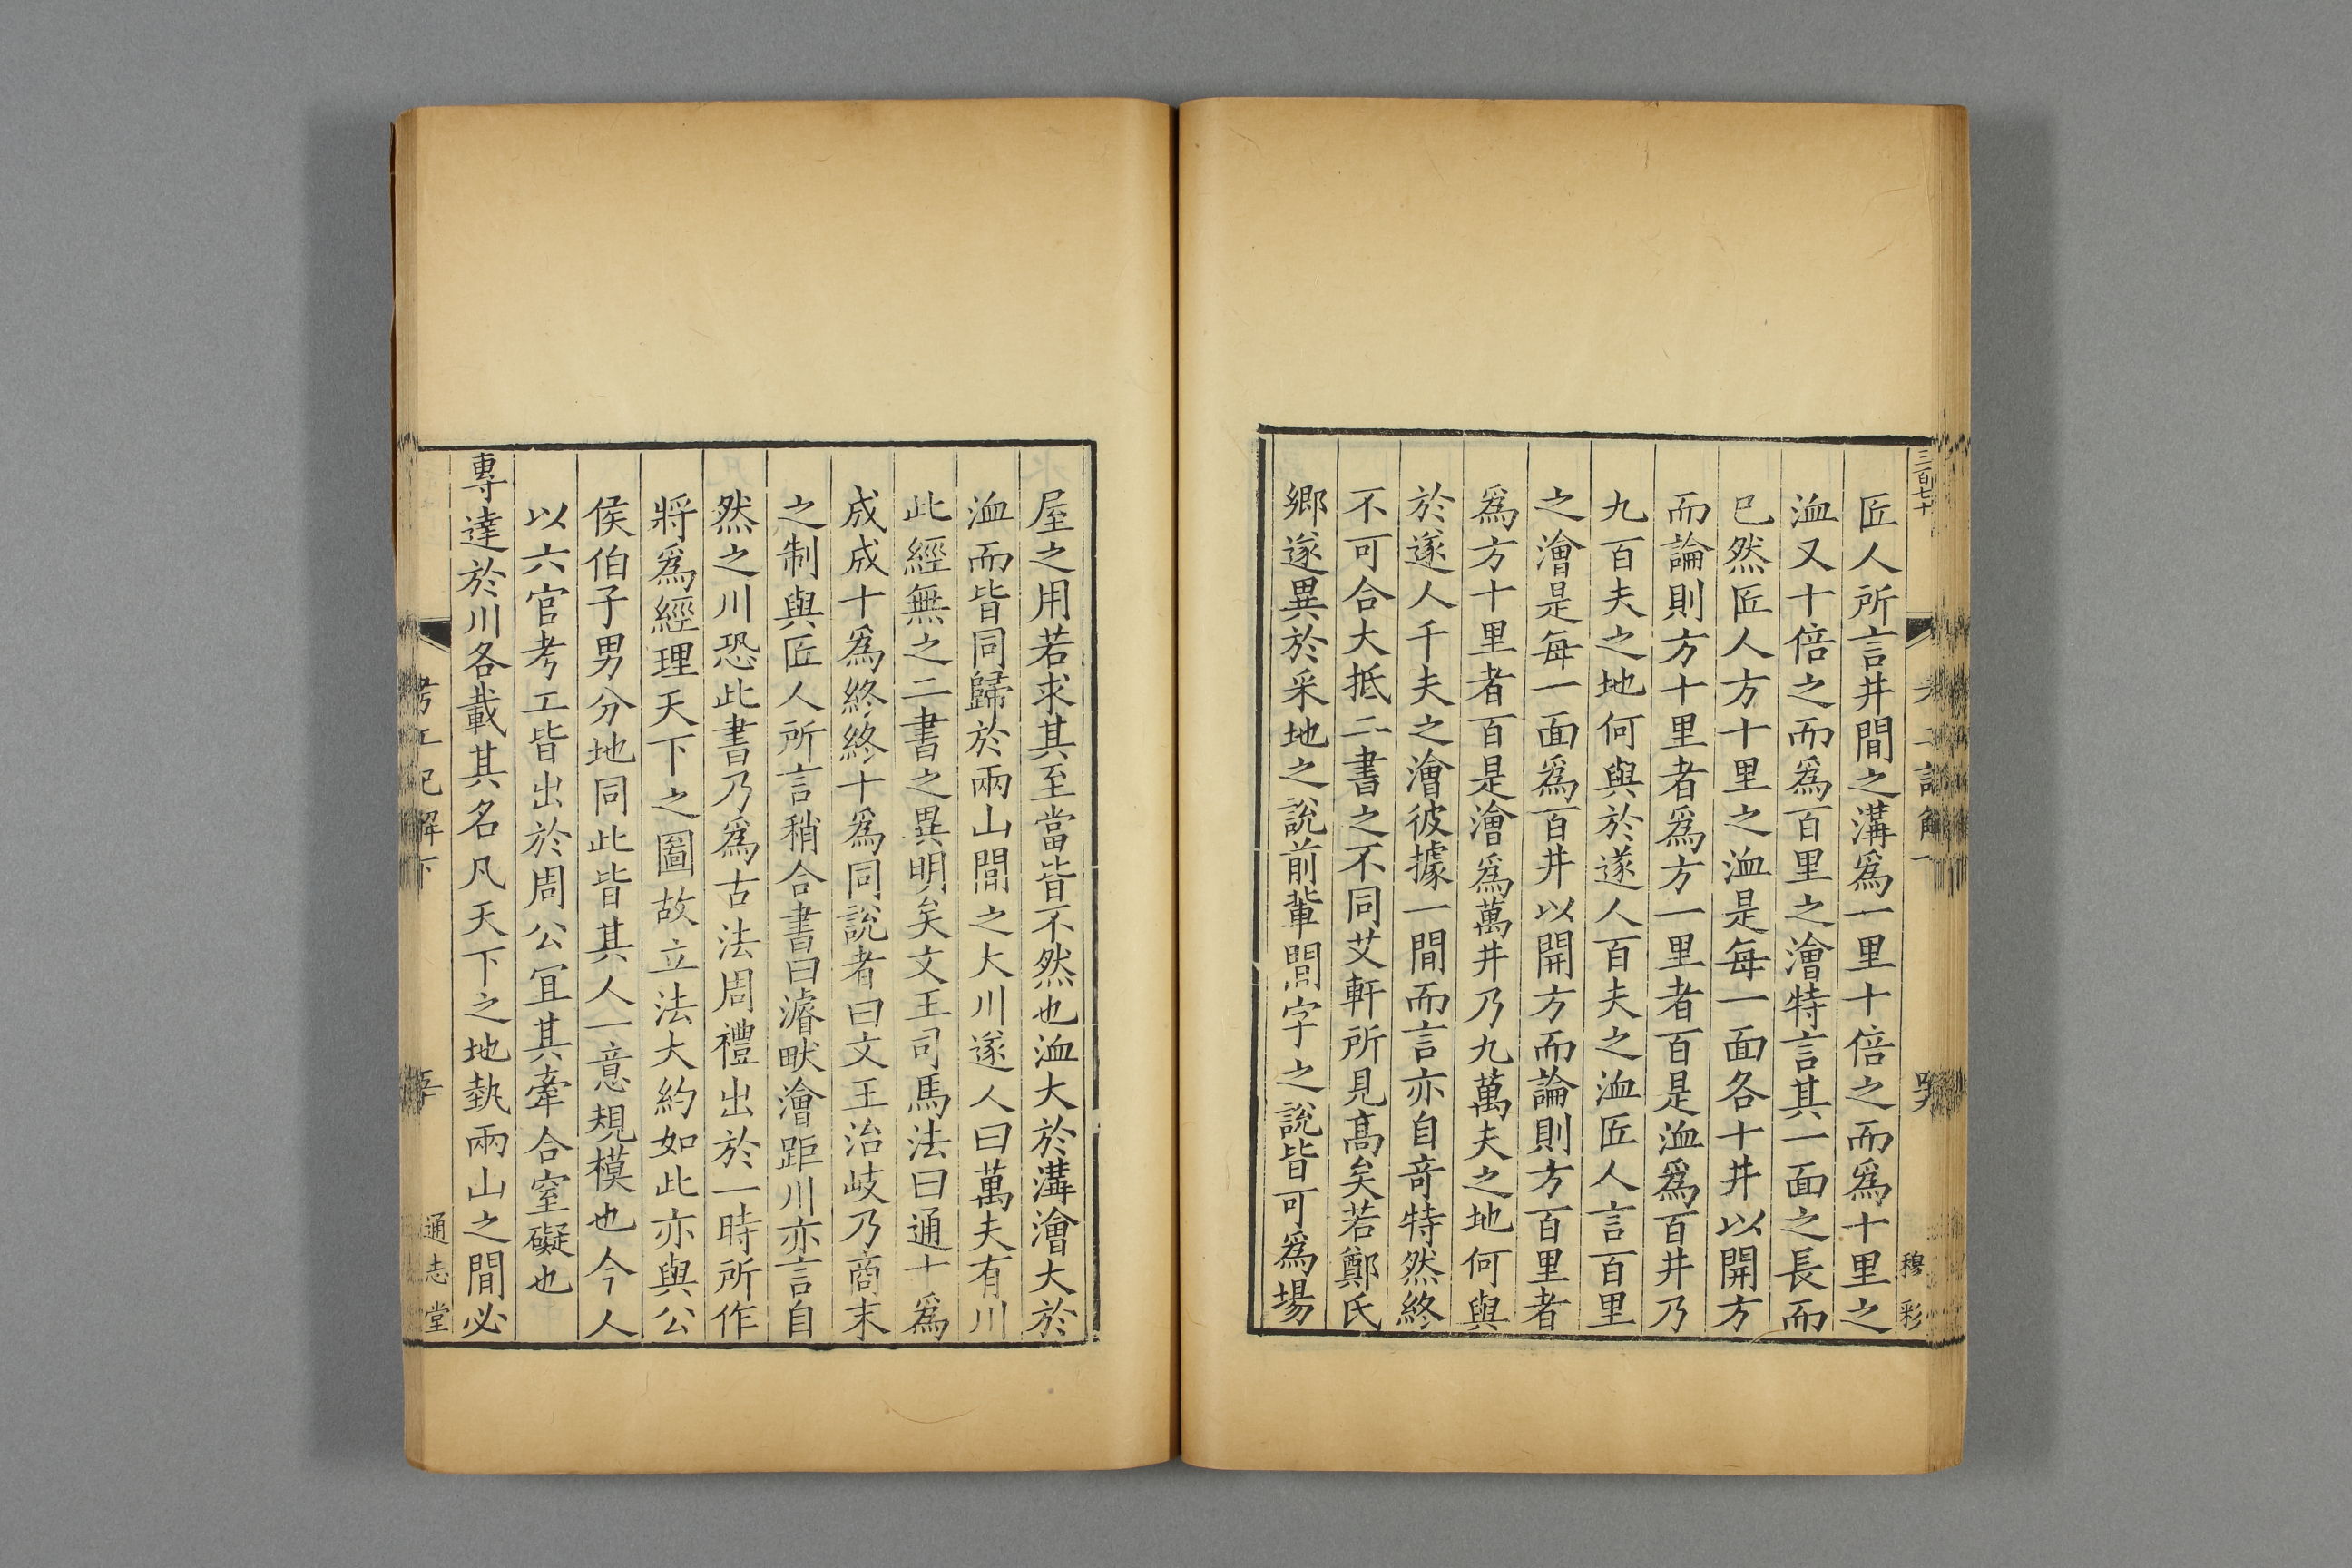 三百七十
匠人所言井間之溝爲一里十倍之而爲十里之
洫又十倍之而爲百里之澮特言其一面之長而
已然匠人方十里之洫是每一面各十井以開方
而論則方十里者爲方一里者百是洫爲百井乃
九百夫之地何與於遂人百夫之洫匠人言百里
之澮是每一面爲百井以開方而論則方百里者
爲方十里者百是澮爲萬井乃九萬夫之地何與
於遂人千夫之澮彼據一間而言亦自竒特然終
不可合大抵二書之不同艾軒所見髙矣若鄭氏
鄉遂異於采地之說前軰閒字之說皆可爲場
穆彩
屋之用若求其至當皆不然也洫大於溝澮大於
洫而皆同歸於兩山閒之大川遂人曰萬夫有川
此經無之二書之異明矣文王司馬法曰通十爲
成成十爲終終十爲同說者曰文王治岐乃商末
之制與匠人所言稍合書曰濬畎澮距川亦言自
然之川恐此書乃爲古法周禮出於一時所作
將爲經理天下之圖故立法大約如此亦與公
侯伯子男分地同此皆其人一意規模也今人
以六官考工皆出於周公冝其牽合窒礙也
專達於川各載其名凡天下之地埶兩山之間必
考工記解下
通志堂